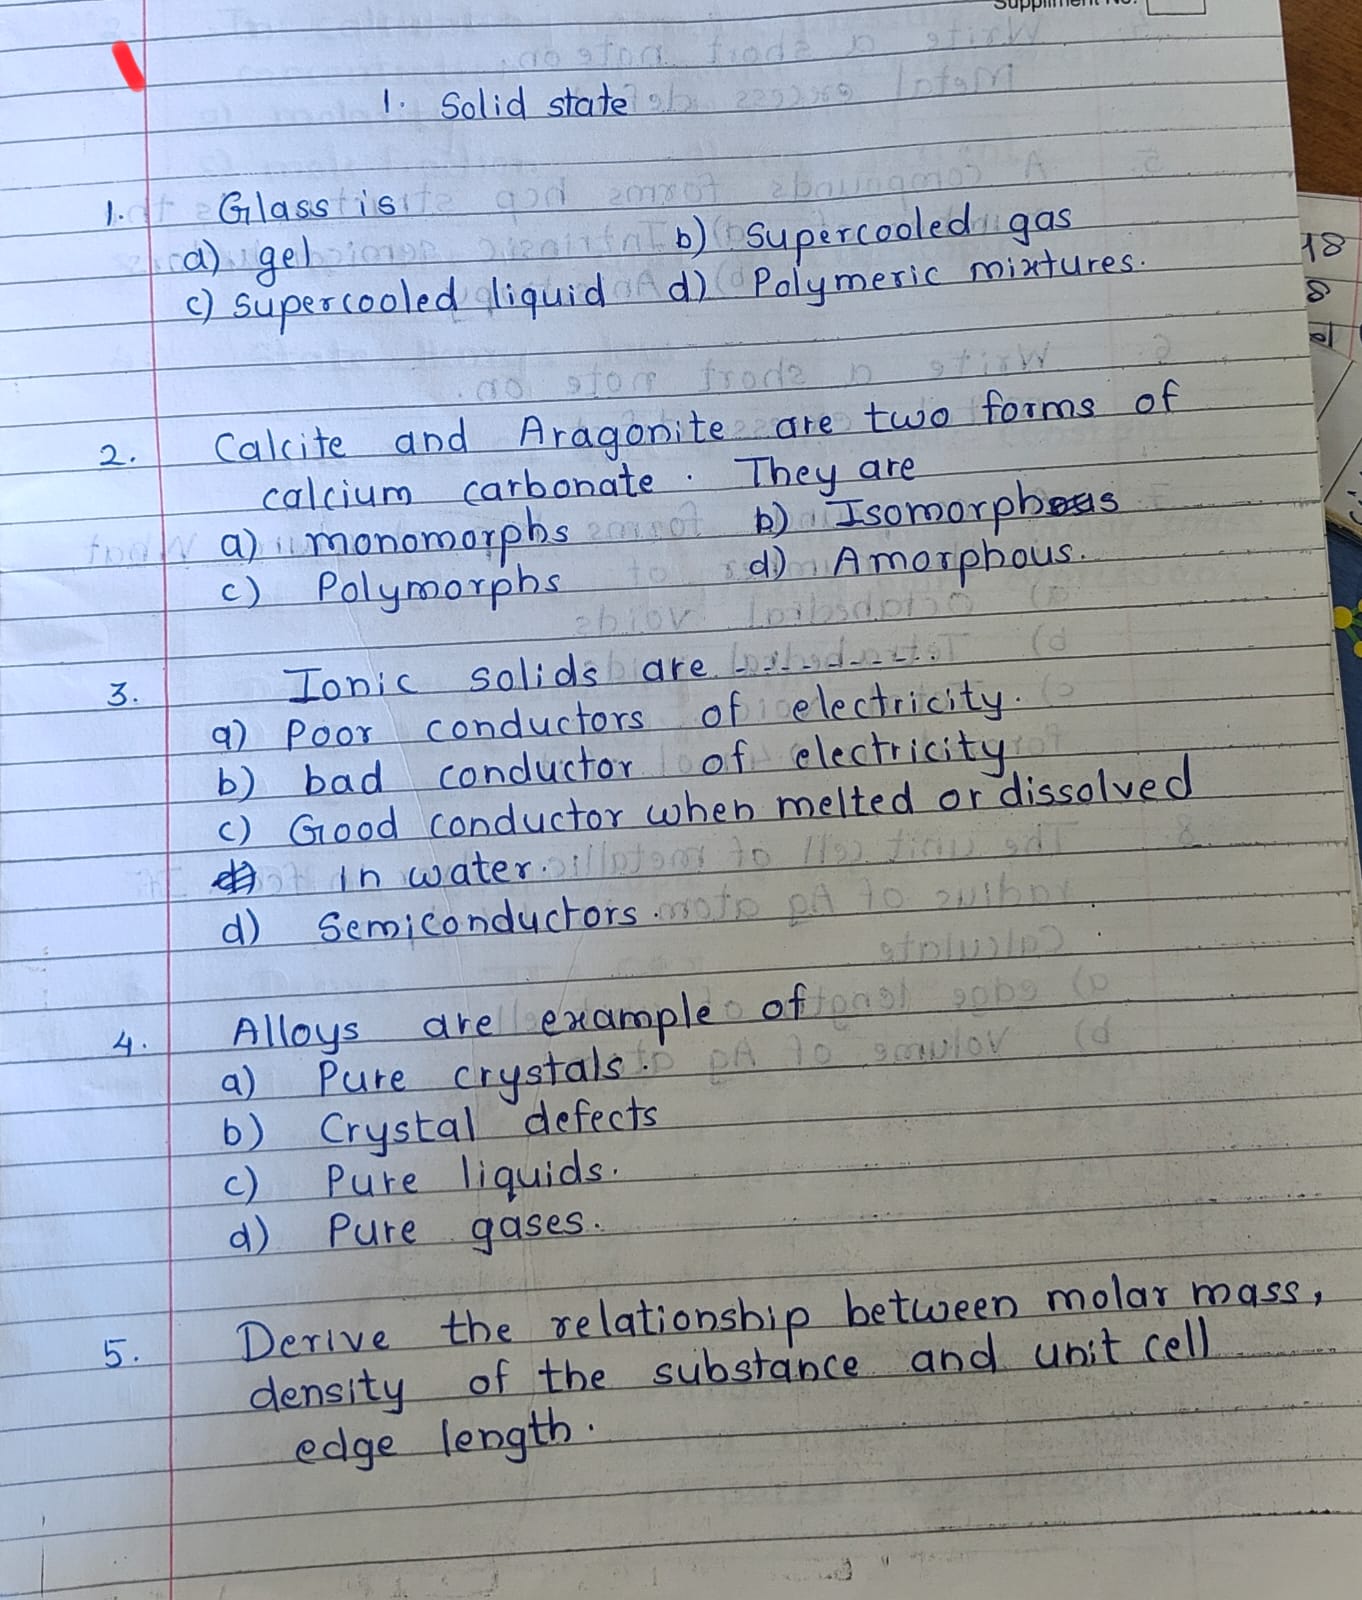 Suppliment No.
1. Solid state
1. Glass is
a) gel b) Supercooled gas
c) supercooled liquid d) Polymeric mixtures.
2. Calcite and Aragonite are two forms of
calcium carbonate. They are
a) monomorphs b) Isomorphous
c) Polymorphs d) Amorphous.
3. Ionic solids are -------.
a) Poor conductors of electricity.
b) bad conductor of electricity
c) Good conductor when melted or dissolved
in water.
d) Semiconductors.
4. Alloys are example of
a) Pure crystals.
b) Crystal defects
c) Pure liquids.
d) Pure gases.
5. Derive the relationship between molar mass,
density of the substance and unit cell
edge length.
18
8